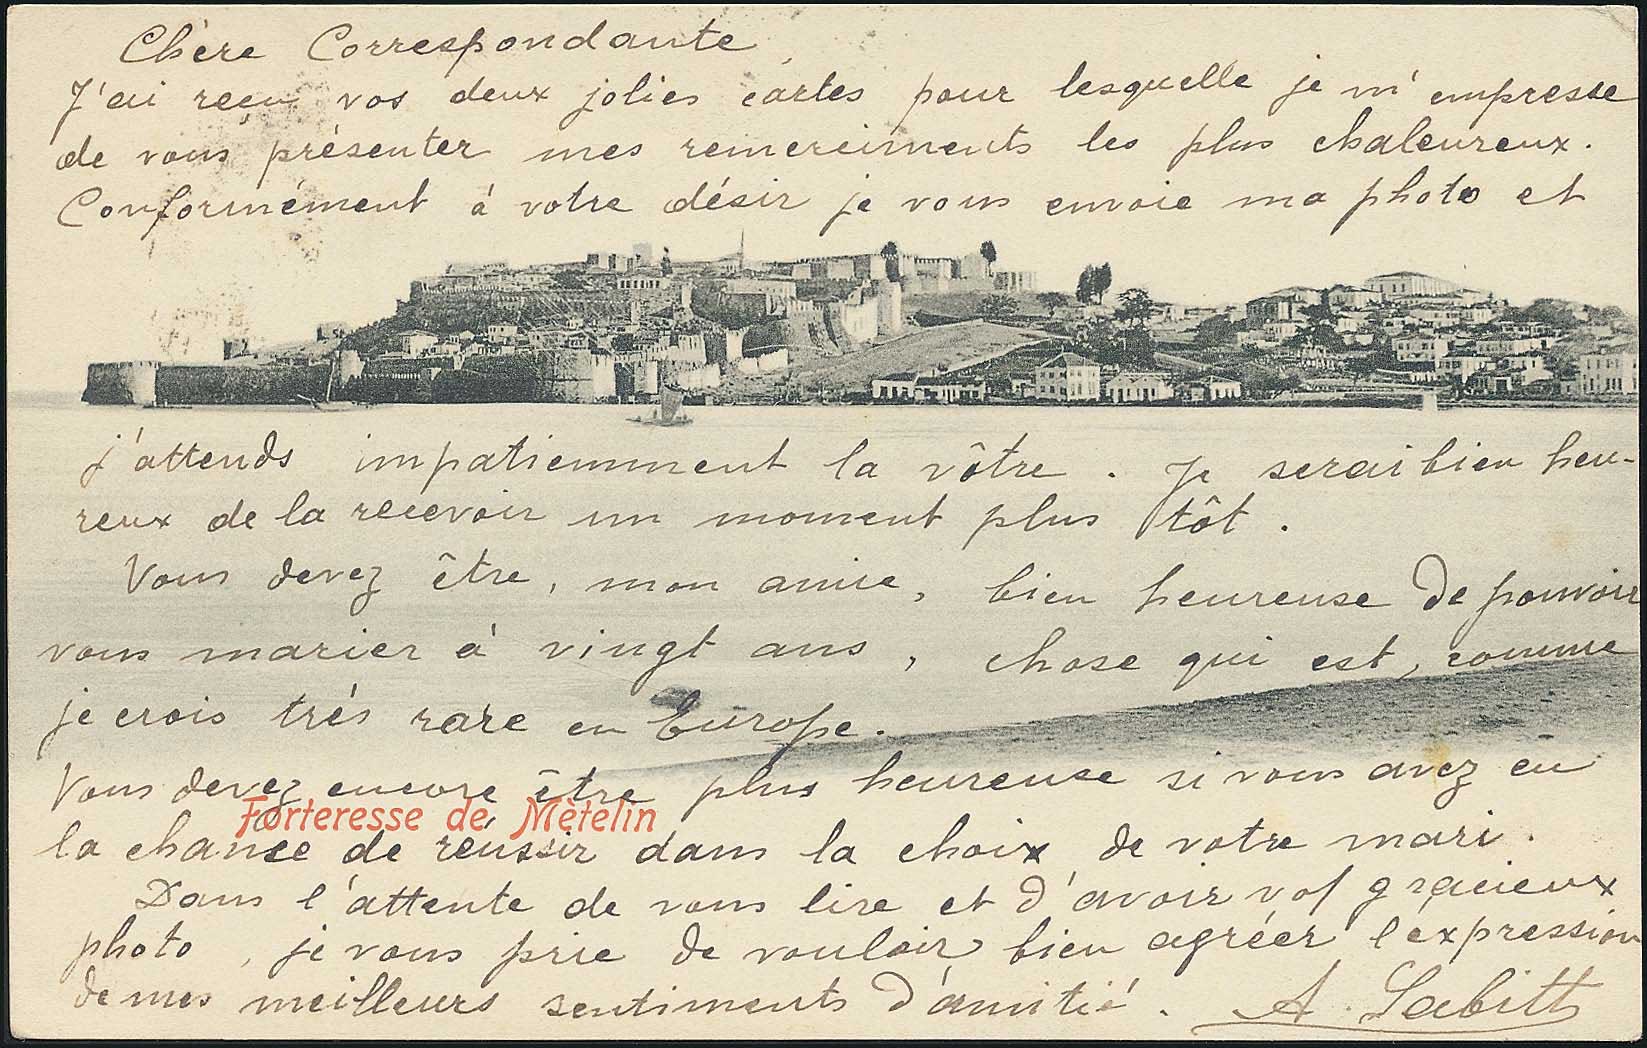 Chère Correspondante
J'ai reçu vos deux jolies cartes pour lesquelle je m'empresse
de vous présenter mes remerciments les plus chaleureux.
Conformément à votre désir je vous envoie ma photo et
j'attends impatiemment la vôtre. Je serai bien heu-
reux de la recevoir un moment plus tôt.
Vous devez être, mon amie, bien heureuse de pouvoir
vous marier à vingt ans, chose qui est, comme
je crois trés rare en Europe.
Vous devez encore être plus heureuse si vous avez eu
Forteresse de Mètelin
la chance de réussir dans la choix de votre mari.
Dans l'attente de vous lire et d'avoir vos gracieux
photo, je vous prie de vouloir bien agréer l'expression
de mes meilleurs sentiments d'amitié. A. Sabitt